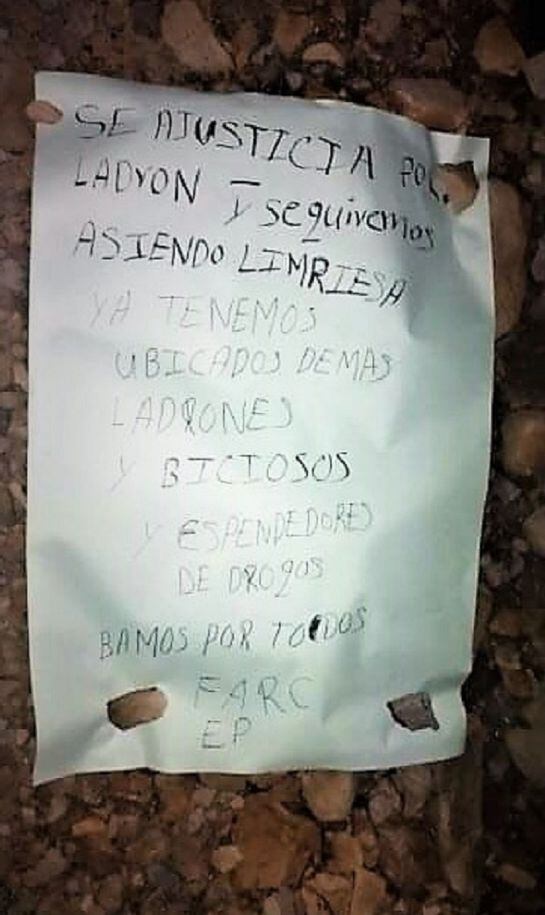 SE AJUSTICIA POR.
LADRON – Y seguiremos
ASIENDO LIMPIESA
YA TENEMOS
UBICADOS DEMAS
LADRONES
Y BICIOSOS
Y ESPENDEDORES
DE DROgas
BAMOS POR TODOS
FARC
EP